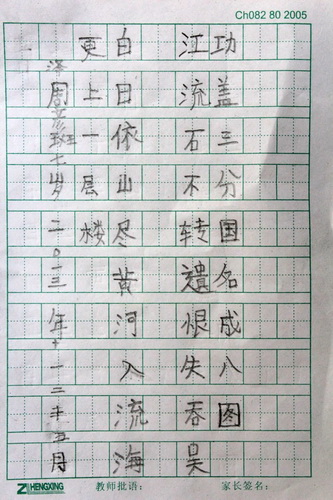 Ch082 80 2005
功盖三分国名成八图
江流石不转遺恨失吞昊
白日依山尽黄河入流海
更上一层楼
泽周班七岁二0一三年十一二年五月
ZHENGXING
教师批语： 家长签名：